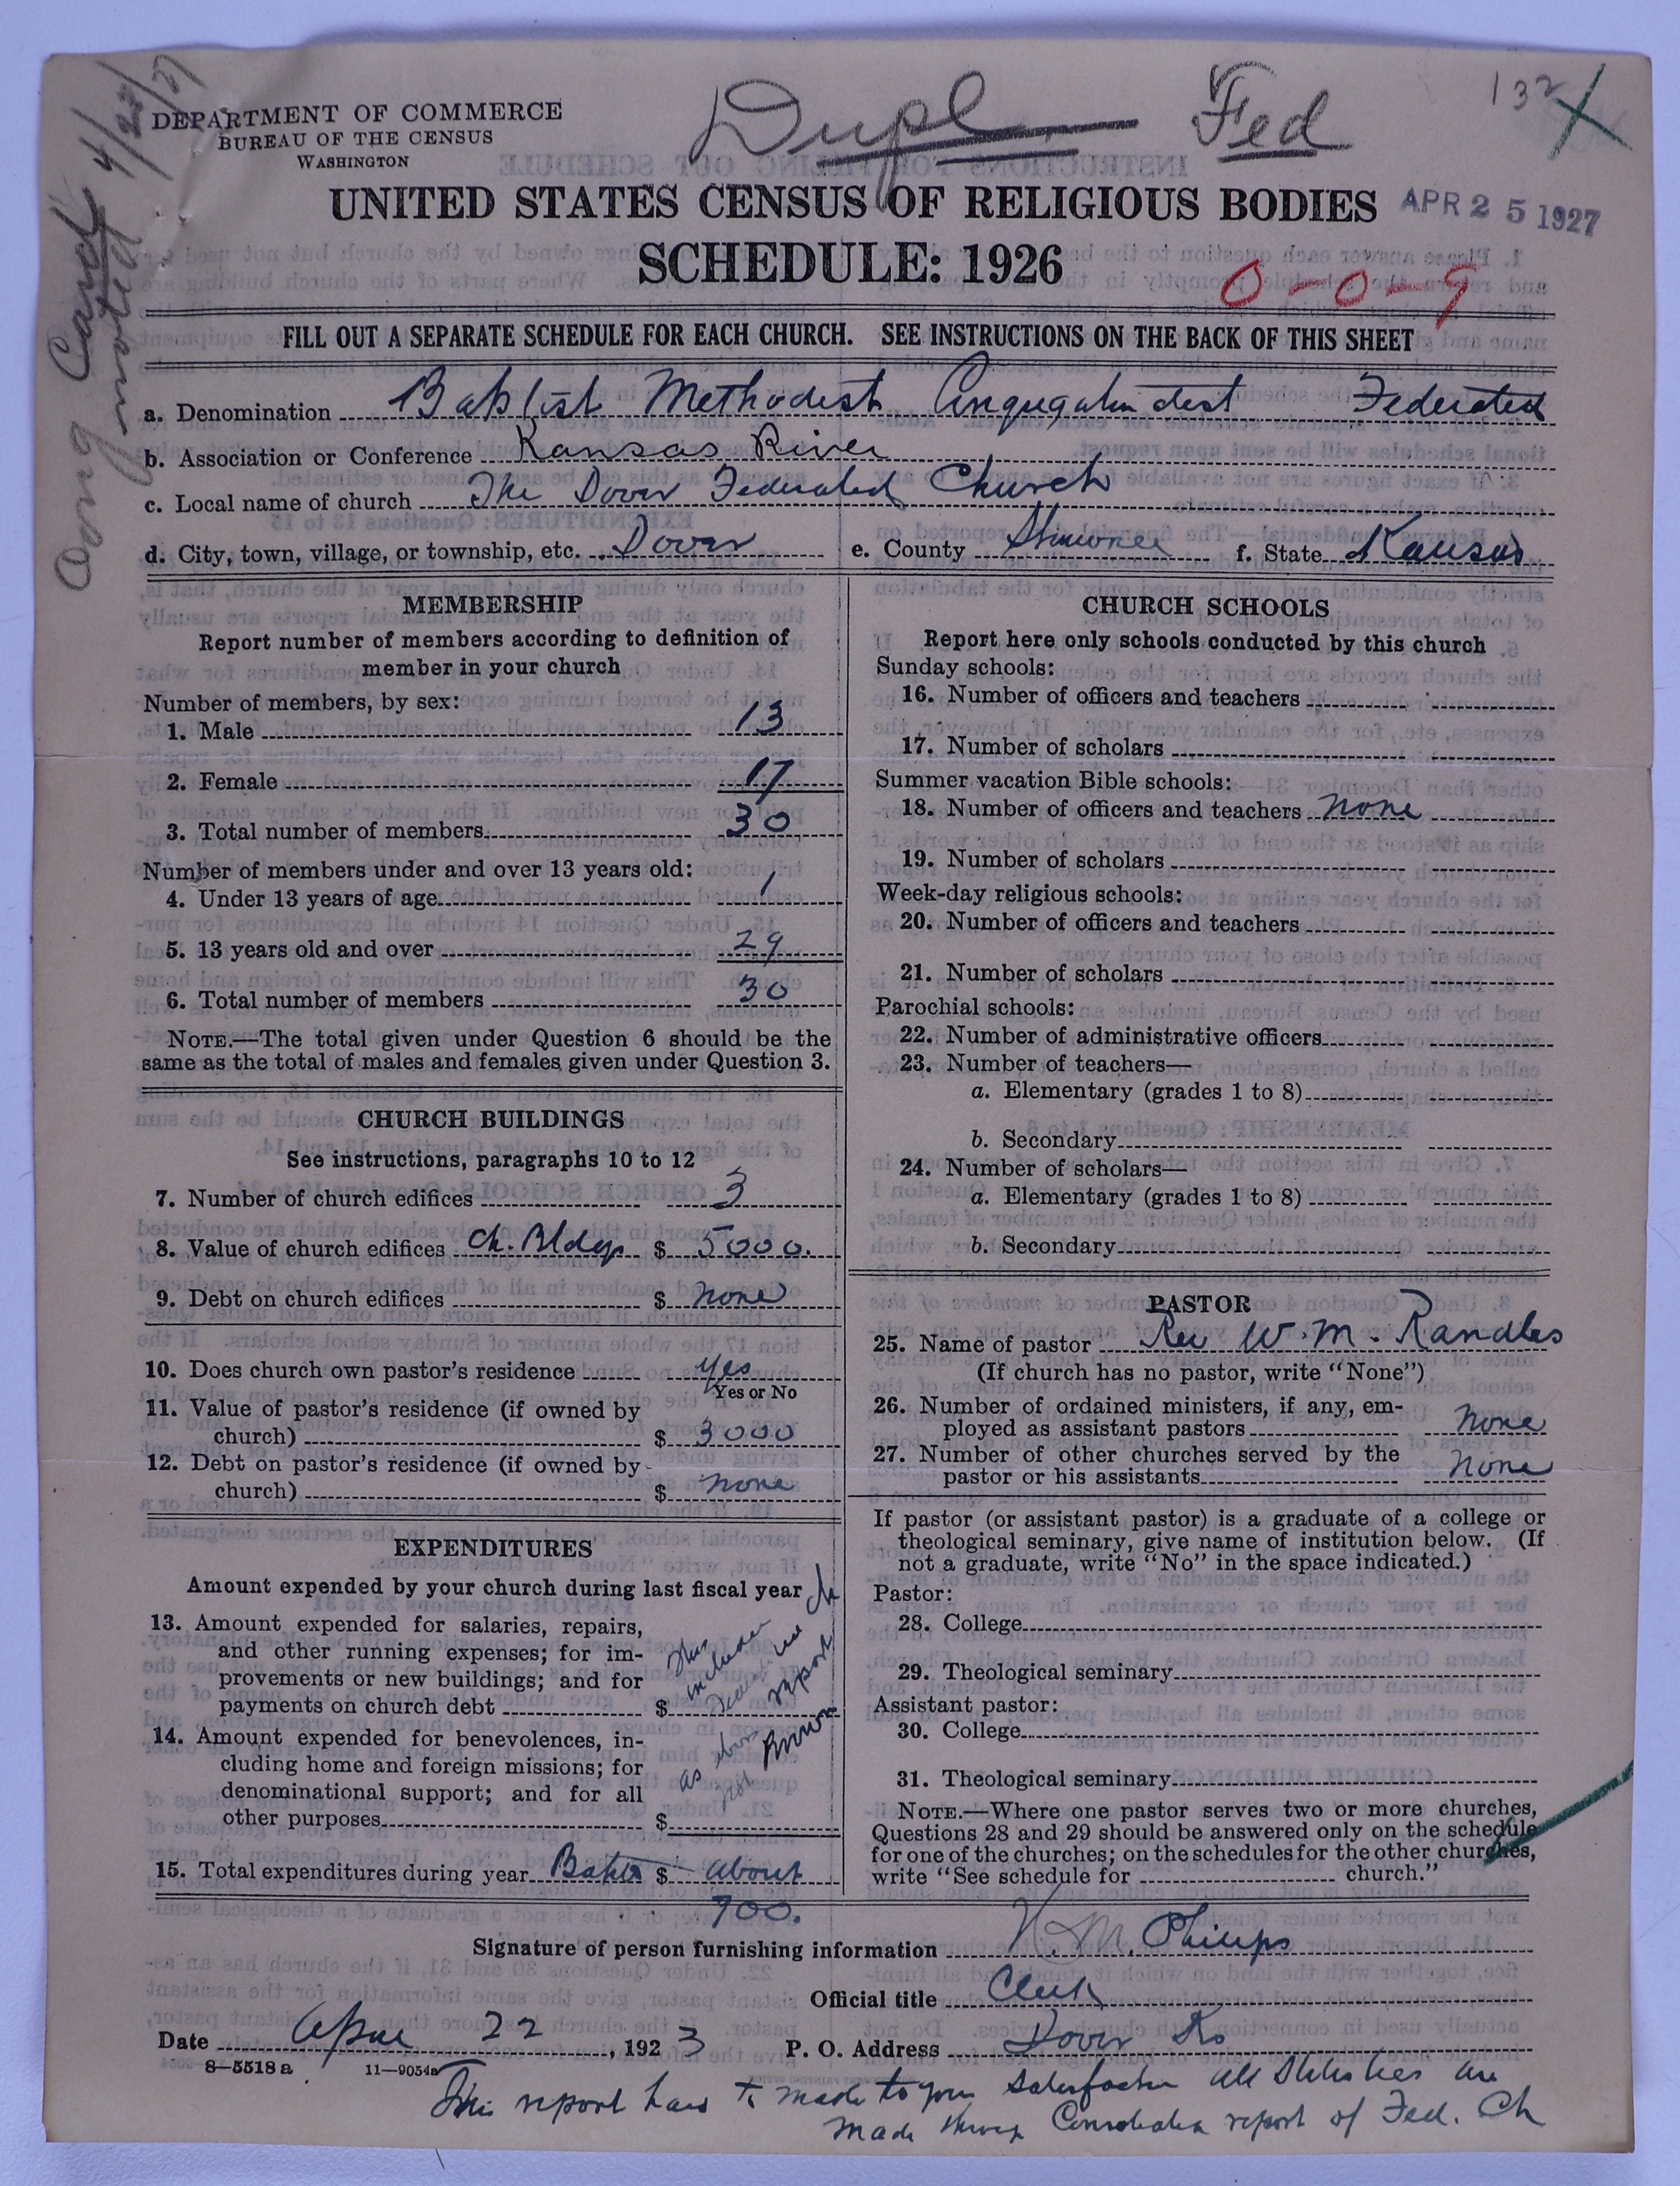 Dupl Fed 132
DEPARTMENT OF COMMERCE
BUREAU OF THE CENSUS
WASHINGTON
UNITED STATES CENSUS OF RELIGIOUS BODIES
APR 25 1927
SCHEDULE: 1926
0-0-9
FILL OUT A SEPARATE SCHEDULE FOR EACH CHURCH. SEE INSTRUCTIONS ON THE BACK OF THIS SHEET
Card
noted
a. Denomination Baptist Methodist Federated
b. Association or Conference Kansas River
c. Local name of church The Dover Federated Church
d. City, town, village, or township, etc. Dover e. County Shawnee f. State Kansas
MEMBERSHIP
Report number of members according to definition of
member in your church
Number of members, by sex:
1. Male 13
2. Female 17
3. Total number of members 30
Number of members under and over 13 years old:
4. Under 13 years of age 1
5. 13 years old and over 29
6. Total number of members 30
NOTE.—The total given under Question 6 should be the
same as the total of males and females given under Question 3.
CHURCH BUILDINGS
See instructions, paragraphs 10 to 12
7. Number of church edifices 3
8. Value of church edifices Ch. Bldgs $ 5000.
9. Debt on church edifices $ none
10. Does church own pastor's residence yes
Yes or No
11. Value of pastor's residence (if owned by
church) $ 3000
12. Debt on pastor's residence (if owned by
church) $ none
EXPENDITURES
Amount expended by your church during last fiscal year
13. Amount expended for salaries, repairs,
and other running expenses; for im-
provements or new buildings; and for
payments on church debt $
14. Amount expended for benevolences, in-
cluding home and foreign missions; for
denominational support; and for all
other purposes $
report
as
15. Total expenditures during year $ about
900.
CHURCH SCHOOLS
Report here only schools conducted by this church
Sunday schools:
16. Number of officers and teachers
17. Number of scholars
Summer vacation Bible schools:
18. Number of officers and teachers none
19. Number of scholars
Week-day religious schools:
20. Number of officers and teachers
21. Number of scholars
Parochial schools:
22. Number of administrative officers
23. Number of teachers—
a. Elementary (grades 1 to 8)
b. Secondary
24. Number of scholars—
a. Elementary (grades 1 to 8)
b. Secondary
PASTOR
25. Name of pastor Rev W. M. Randles
(If church has no pastor, write "None")
26. Number of ordained ministers, if any, em-
ployed as assistant pastors none
27. Number of other churches served by the
pastor or his assistants none
If pastor (or assistant pastor) is a graduate of a college or
theological seminary, give name of institution below. (If
not a graduate, write "No" in the space indicated.)
Pastor:
28. College
29. Theological seminary
Assistant pastor:
30. College
31. Theological seminary
NOTE.—Where one pastor serves two or more churches,
Questions 28 and 29 should be answered only on the schedule
for one of the churches; on the schedules for the other churches,
write "See schedule for church."
Signature of person furnishing information M. Philips
Official title Clerk
Date 22, 1923 P. O. Address Dover Ks
8—5518 a 11—9054a
This report to made to your all are
made report of Fed. Ch